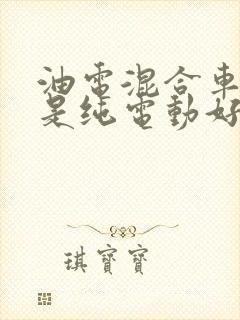 油電混合車
是純電動好
琪寶寶